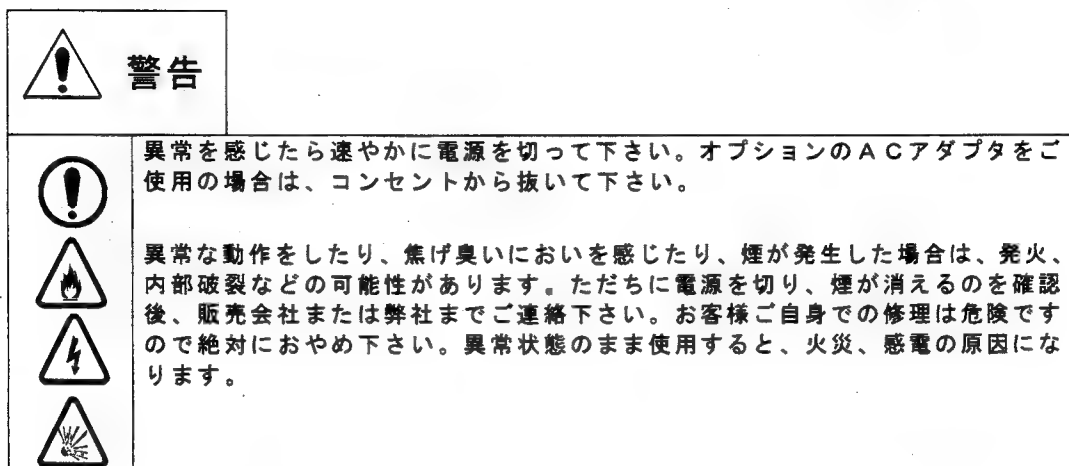 警告
異常を感じたら速やかに電源を切って下さい。オプションのＡＣアダプタをご
使用の場合は、コンセントから抜いて下さい。
異常な動作をしたり、焦げ臭いにおいを感じたり、煙が発生した場合は、発火、
内部破裂などの可能性があります。ただちに電源を切り、煙が消えるのを確認
後、販売会社または弊社までご連絡下さい。お客様ご自身での修理は危険です
ので絶対におやめ下さい。異常状態のまま使用すると、火災、感電の原因にな
ります。